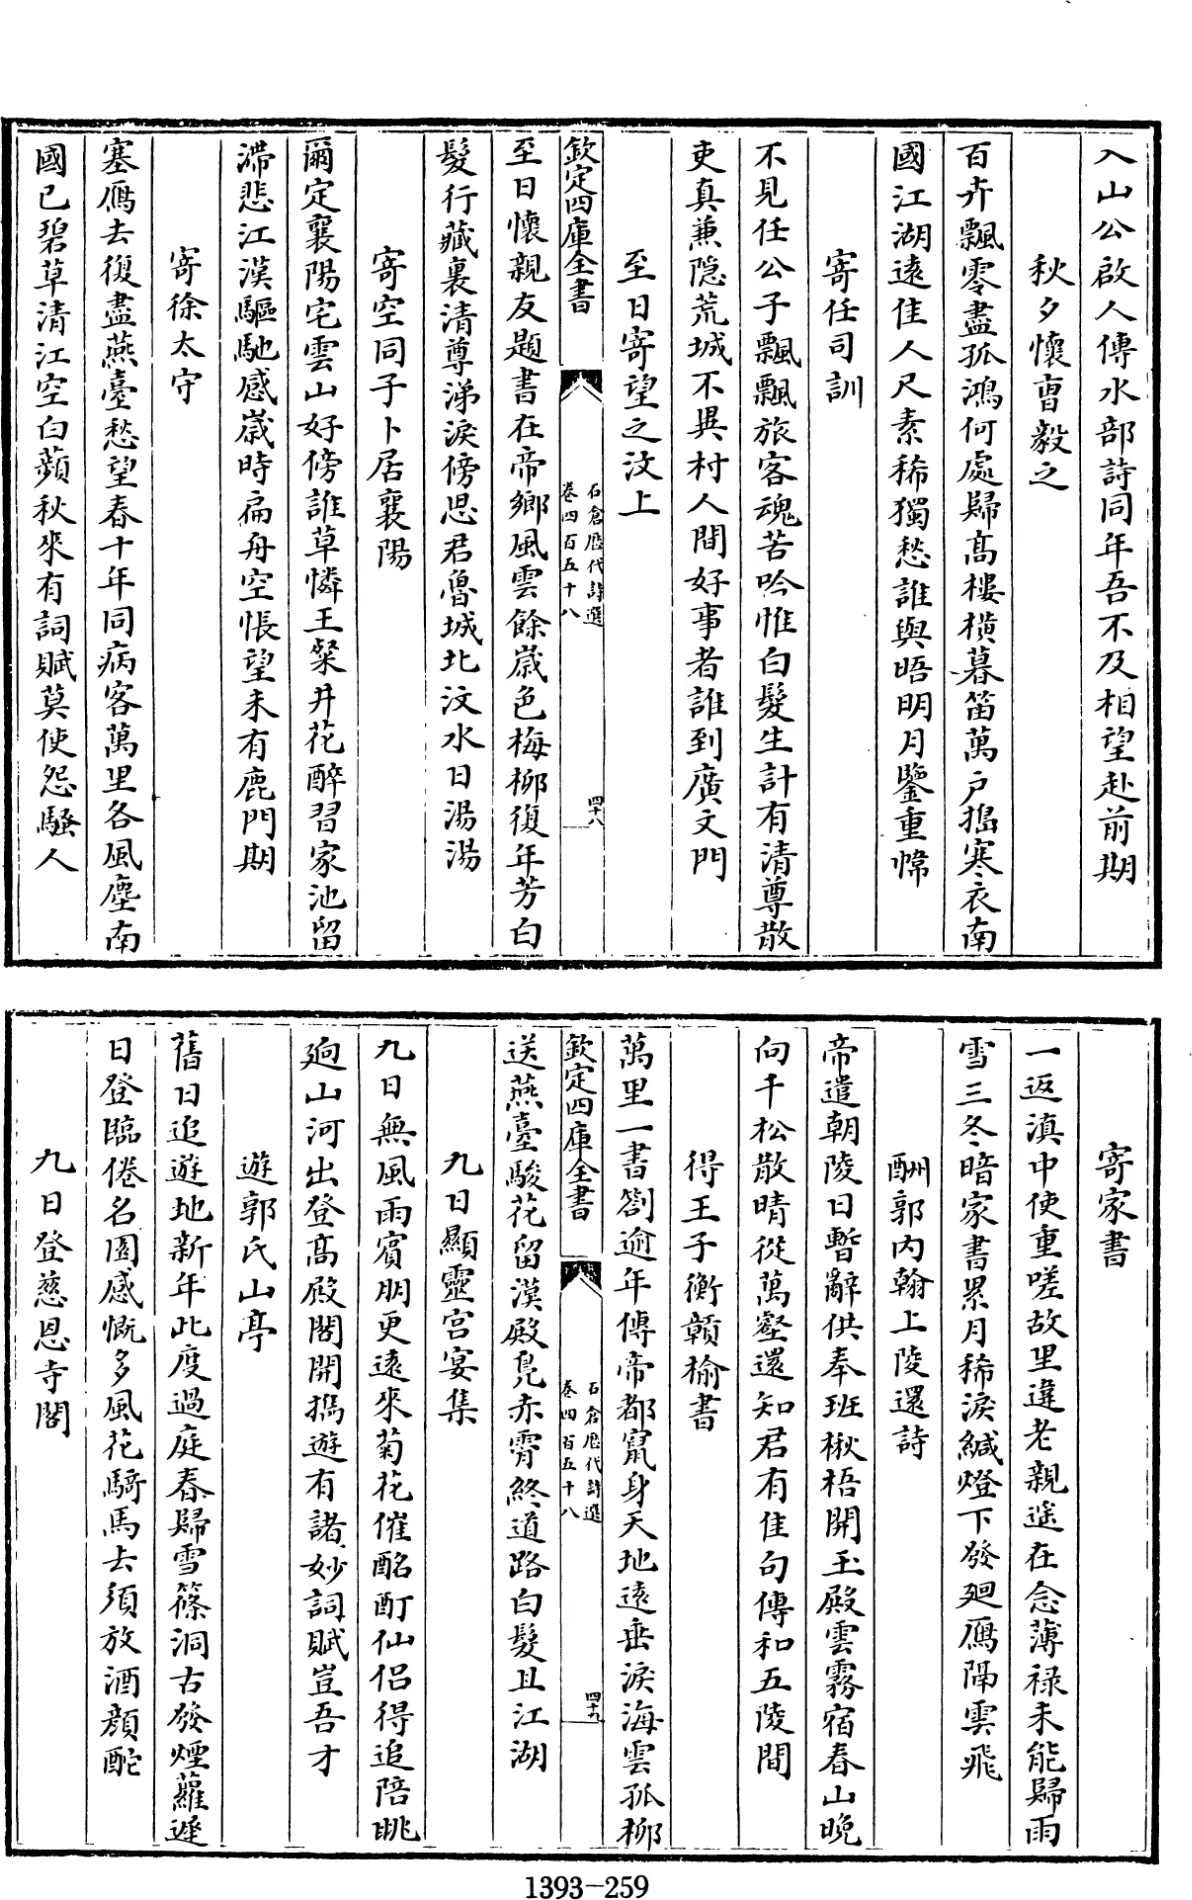 入山公啟人傳水部詩同年吾不及相望赴前期
秋夕懷曹毅之
百卉飄零盡孤鴻何處歸高樓橫暮笛萬户搗寒衣南
國江湖遠佳人尺素稀獨愁誰與晤明月鑒重幃
寄任司訓
不見任公子飄飄旅客魂苦吟惟白髮生計有清尊散
吏真兼隠荒城不異村人間好事者誰到廣文門
至日寄望之汶上
欽定四庫全書
石倉歴代詩選
卷四百五十八
四十八
至日懷親友題書在帝鄉風雲餘嵗色梅柳復年芳白
髮行藏裏清尊涕淚傍思君魯城北汶水日湯湯
寄空同子卜居襄陽
爾定襄陽宅雲山好傍誰草憐王粲井花醉習家池留
滯悲江漢驅馳感嵗時扁舟空悵望未有鹿門期
寄徐太守
塞鴈去復盡燕臺愁望春十年同病客萬里各風塵南
國已碧草清江空白蘋秋來有詞賦莫使怨騷人
寄家書
一返滇中使重嗟故里違老親遥在念薄禄未能歸雨
雪三冬暗家書累月稀淚緘燈下發廻鴈隔雲飛
酬郭内翰上陵還詩
帝遣朝陵日暫辭供奉班楸梧開玉殿雲霧宿春山晚
向千松散晴從萬壑還知君有佳句傳和五陵間
得王子衡贛榆書
萬里一書劄逾年傳帝都竄身天地遠垂淚海雲孤柳
欽定四庫全書
石倉歴代詩選
卷四百五十八
四十九
送燕臺駿花留漢殿鳬赤霄終道路白髮且江湖
九日顯靈宫宴集
九日無風雨賓朋更遠來菊花催酩酊仙侣得追陪眺
逈山河出登高殿閣開攜遊有諸妙詞賦豈吾才
遊郭氏山亭
舊日追遊地新年此度過庭春歸雪篠洞古發煙蘿遲
日登臨倦名園感慨多風花騎馬去須放酒顔酡
九日登慈恩寺閣
1393-259